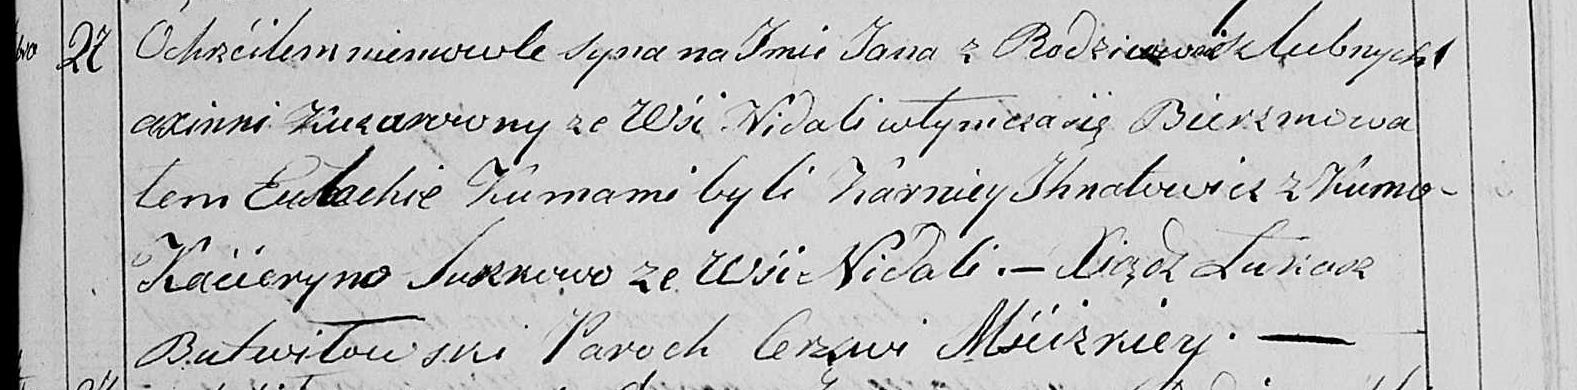 27 Ochrźciłem niemowle syna na Imie Jana z Rodzicow ślubnych
axinni Kucarowny ze Wśi Nidali wtymczasię Bierzmowa
łem Eustachie Kumami byli Karniey Ihnatowicz z Kumo-
Kacieryno Suszkowo ze Wśi Nidali. — Xiądz Łukasz
Butwiłowski Paroch Cerkwi Mścizkiey. —